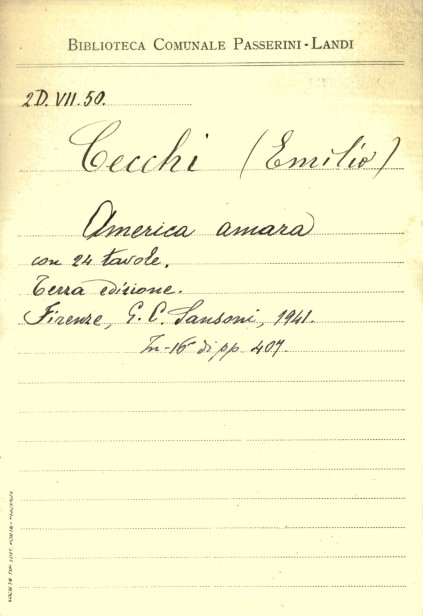 BIBLIOTECA COMUNALE PASSERINI-LANDI
2D. VII. 50.
Cecchi (Emilio)
America amara
con 24 tavole.
Terza edizione.
Firenze, G. C. Sansoni, 1941.
In-16° di pp. 407.